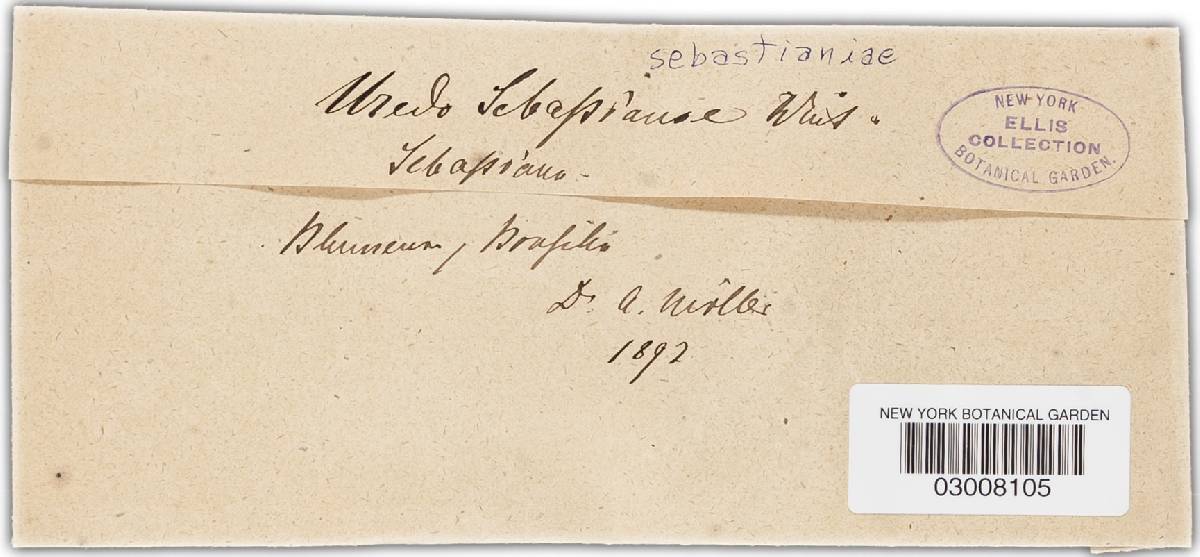 sebastianiae
Uredo Sebastianiae Wint.
Sebastiana
NEW-YORK
ELLIS
COLLECTION
BOTANICAL GARDEN.
Blumenau, Brasilia
Dr. A. Möller
1892
NEW YORK BOTANICAL GARDEN
03008105